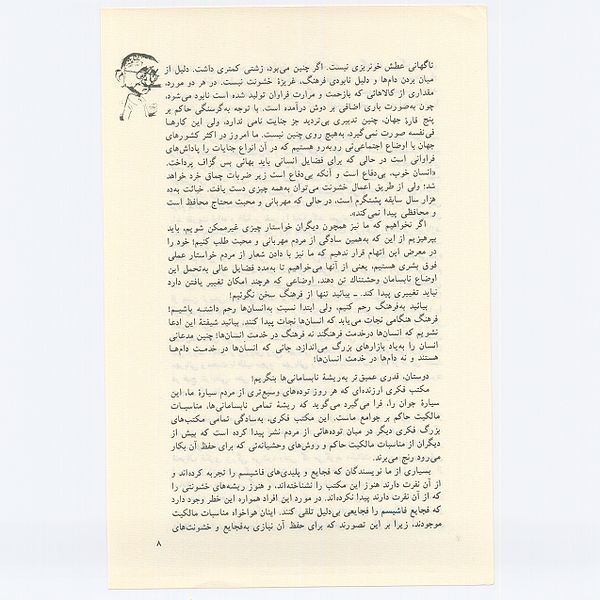 ناگهانی عطش خونریزی نیست. اگر چنین می‌بود، زشتی کمتری داشت. دلیل از
میان بردن دام‌ها و دلیل نابودی فرهنگ، غریزهٔ خشونت نیست. در هر دو مورد،
مقداری از کالاهائی که بازحمت و مرارت فراوان تولید شده است نابود می‌شود،
چون به‌صورت باری اضافی بر دوش درآمده است. با توجه به‌گرسنگی حاکم بر
پنج قارهٔ جهان، چنین تدبیری بی‌تردید جز جنایت نامی ندارد، ولی این کارها
فی‌نفسه صورت نمی‌گیرد، به‌هیچ روی چنین نیست. ما امروز در اکثر کشورهای
جهان با اوضاع اجتماعی‌ئی روبه‌رو هستیم که در آن انواع جنایات را پاداش‌های
فراوانی است در حالی که برای فضایل انسانی باید بهائی بس گزاف پرداخت.
«انسان خوب، بی‌دفاع است و آنکه بی‌دفاع است زیر ضربات چماق خرد خواهد
شد؛ ولی از طریق اعمال خشونت می‌توان به‌همه چیزی دست یافت. خباثت به‌ده
هزار سال سابقه پشتگرم است، در حالی که مهربانی و محبت محتاج محافظ است
و محافظی پیدا نمی‌کند».
اگر نخواهیم که ما نیز همچون دیگران خواستار چیزی غیرممکن شویم، باید
بپرهیزیم از این که به‌همین سادگی از مردم مهربانی و محبت طلب کنیم! خود را
در معرض این اتهام قرار ندهیم که ما نیز با دادن شعار از مردم خواستار عملی
فوق بشری هستیم، یعنی از آنها می‌خواهیم تا به‌مدد فضایل عالی به‌تحمل این
اوضاع نابسامان وحشتناك تن دهند، اوضاعی که هرچند امکان تغییر یافتن دارد
نباید تغییری پیدا کند. ـ بیائید تنها از فرهنگ سخن نگوئیم!
بیائید به‌فرهنگ رحم کنیم، ولی ابتدا نسبت به‌انسان‌ها رحم داشته باشیم!
فرهنگ هنگامی نجات می‌یابد که انسان‌ها نجات پیدا کنند. بیائید شیفتهٔ این ادعا
نشویم که انسان‌ها درخدمت فرهنگند نه فرهنگ در خدمت انسان‌ها! چنین مدعائی
انسان را به‌یاد بازارهای بزرگ می‌اندازد، جائی که انسان‌ها در خدمت دام‌ها
هستند و نه دام‌ها در خدمت انسان‌ها!
دوستان، قدری عمیق‌تر به‌ریشهٔ نابسامانی‌ها بنگریم!
مکتب فکری ارزنده‌ای که هر روز توده‌های وسیع‌تری از مردم سیارهٔ ما، این
سیارهٔ جوان را، فرا می‌گیرد می‌گوید که ریشهٔ تمامی نابسامانی‌ها، مناسبات
مالکیت حاکم بر جوامع ماست. این مکتب فکری، به‌سادگی تمامی مکتب‌های
بزرگ فکری دیگر در میان توده‌هائی از مردم نشر پیدا کرده است که بیش از
دیگران از مناسبات مالکیت حاکم و روش‌های وحشیانه‌ئی که برای حفظ آن بکار
می‌رود رنج می‌برند.
بسیاری از ما نویسندگان که فجایع و پلیدی‌های فاشیسم را تجربه کرده‌اند و
از آن نفرت دارند هنوز این مکتب را نشناخته‌اند، و هنوز ریشه‌های خشونتی را
که از آن نفرت دارند پیدا نکرده‌اند. در مورد این افراد همواره این خطر وجود دارد
که فجایع فاشیسم را فجایعی بی‌دلیل تلقی کنند. اینان هواخواه مناسبات مالکیت
موجودند، زیرا بر این تصورند که برای حفظ آن نیازی به‌فجایع و خشونت‌های
۸